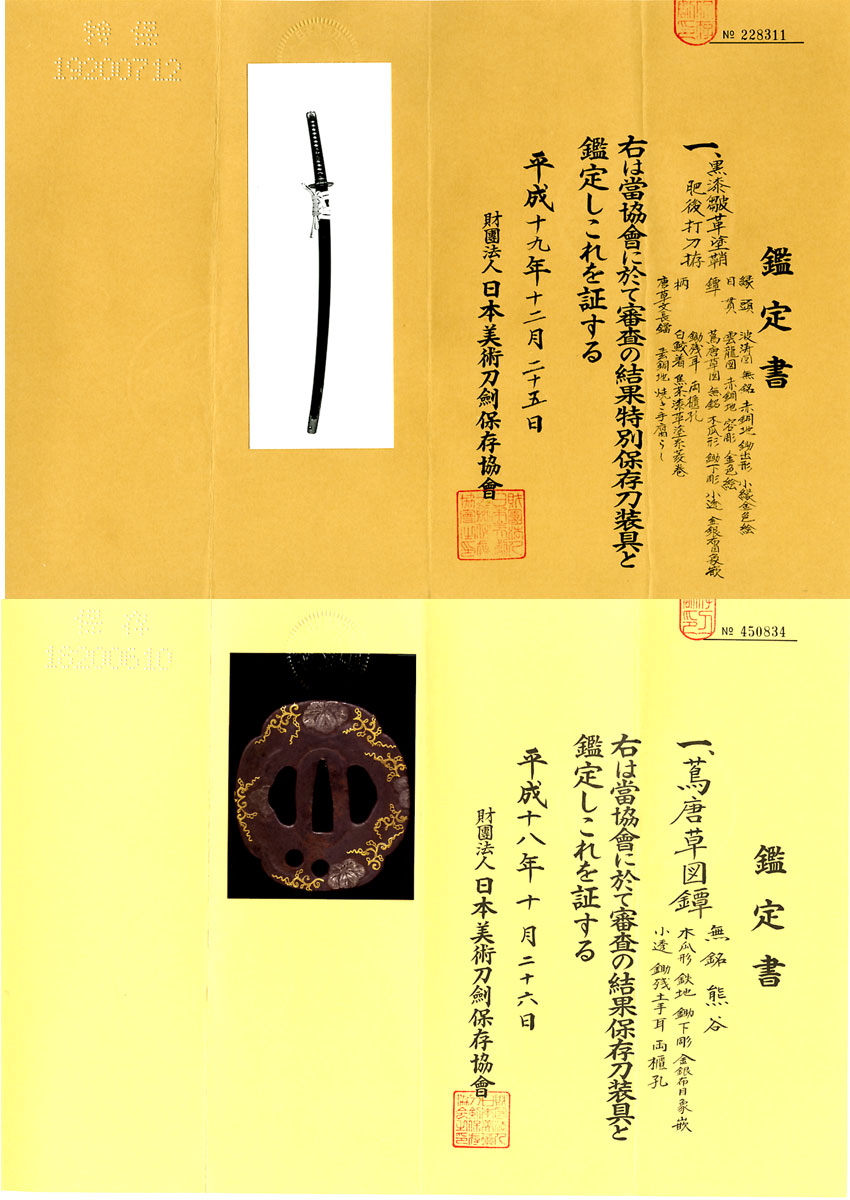 特保
19200712
№ 228311
鑑定書
一、黒漆皺革塗鞘
肥後打刀拵
縁頭 波濤図 無銘 赤銅地 鋤出彫 小縁金色絵
目貫 雲龍図 赤銅地 容彫 金色絵
鐔 蔦唐草図 無銘 木瓜形 鋤下彫 小透 金銀布目象嵌
鋤残耳 両櫃孔
柄 白鮫着 焦茶漆革塗糸菱巻
唐草文長鐺 素銅地 焼き手腐らし
右は當協會に於て審査の結果特別保存刀装具と
鑑定しこれを証する
平成十九年十二月二十五日
財團法人 日本美術刀劍保存協會
保存
18200610
№ 450834
鑑定書
一、蔦唐草図鐔
無銘 熊谷
木瓜形 鉄地 鋤下彫 金銀布目象嵌
小透 鋤残土手耳 両櫃孔
右は當協會に於て審査の結果保存刀装具と
鑑定しこれを証する
平成十八年十月二十六日
財團法人 日本美術刀劍保存協會